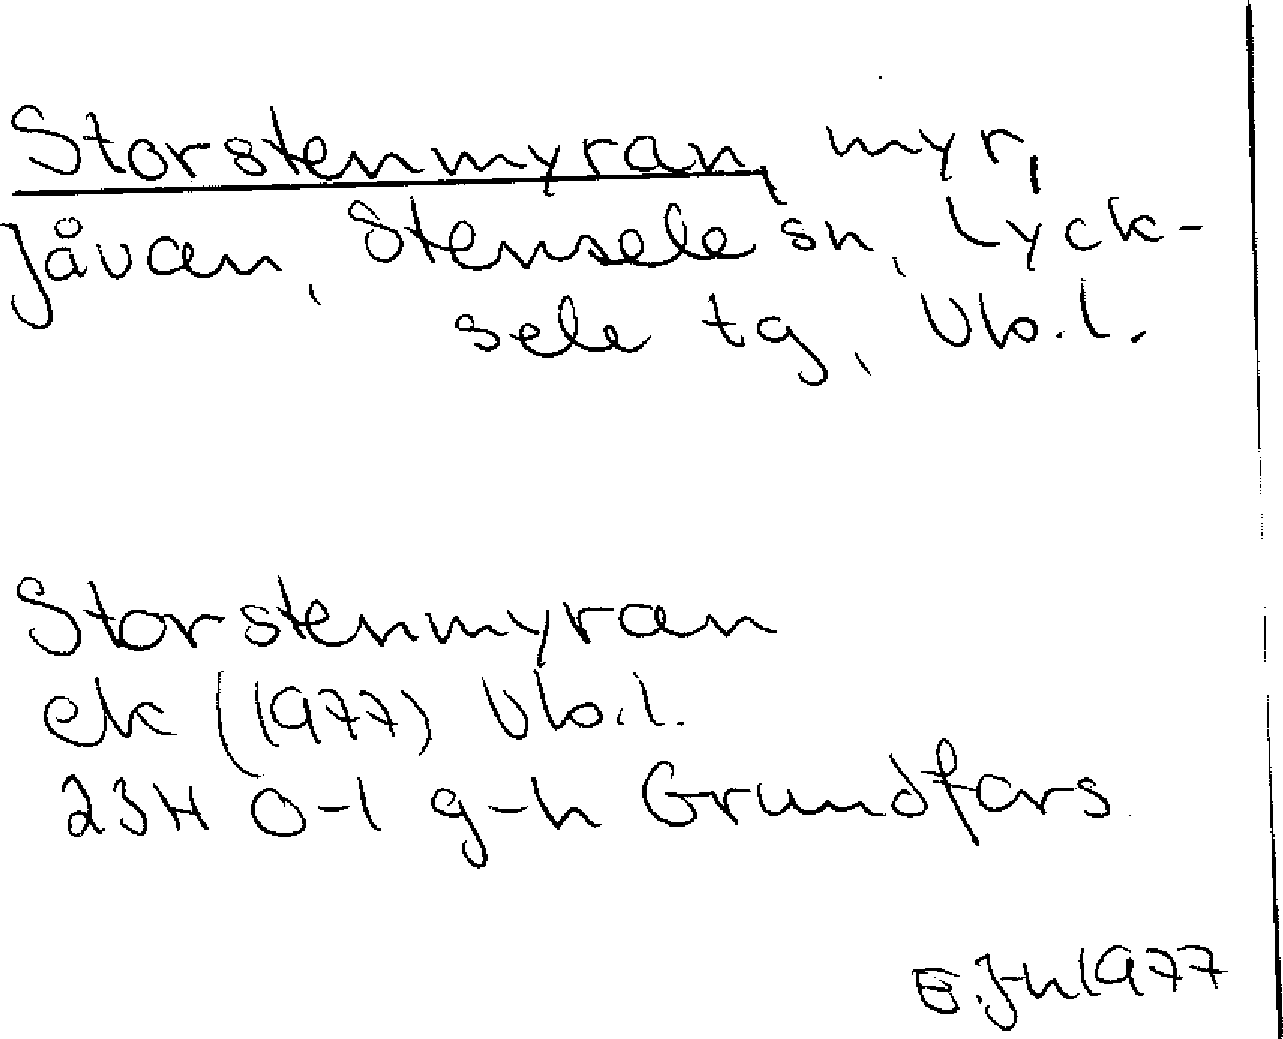 Storstenmyran, myr,
Jåvan, Stensele sn, Lyck-
sele tg, Vb.l.
Storstenmyran
ek (1977) Vb.l.
23H 0-1 g-h Grundfors
E.J-n 1977